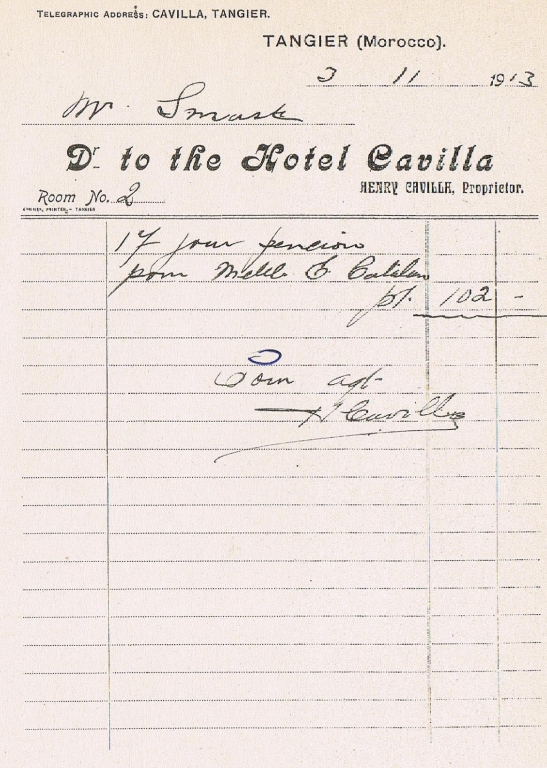 TELEGRAPHIC ADDRESS: CAVILLA, TANGIER.
TANGIER (Morocco).
3 11 1913
Mr. Smask
Dr. to the Hotel Cavilla
HENRY CAVILLA, Proprietor.
Room No. 2
PRINTER, - TANGIER
17 jour pension
pour Melle E Catalan
pt. 102 -
Pour aqt-
H Cavilla